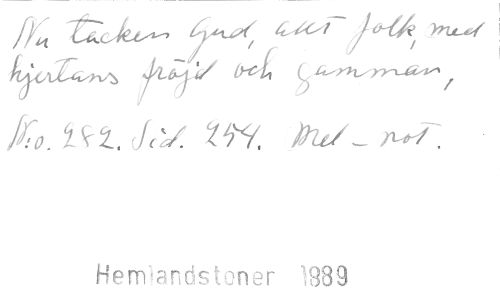 Nu tacken Gud, allt folk, med
hjertans fröjd och gamman,
N:o. 282. Sid. 254. Mel - not.
Hemlandstoner 1889